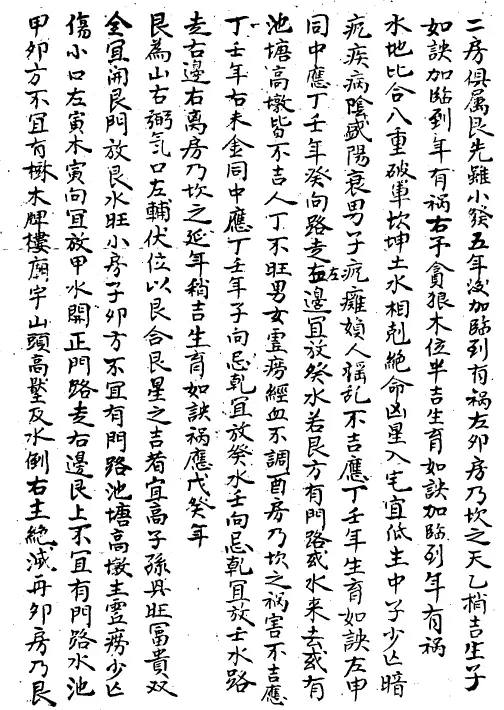 二房俱属艮先雖小發五年後加臨到有禍左卯房乃坎之天乙稍吉生子
如訣加臨到年有禍右子貪狼木位半吉生育如訣加臨到年有禍
水地比合八重破軍坎坤土水相剋絕命凶星入宅宜低主中子少亡暗
疪疾病陰盛陽衰男子疪癱婦人搖乱不吉應丁壬年生育如訣左申
同中應丁壬年癸向路走左邊宜放癸水若艮方有門路或水来去或有
池塘高墩皆不吉人丁不旺男女虛癆經血不調酉房乃坎之禍害不吉應
丁壬年右未金同中應丁壬年子向忌乾宜放癸水壬向忌乾宜放壬水路
走右邊右离房乃坎之延年稍吉生育如訣禍應戊癸年
艮為山右弼氣口左輔伏位以艮合艮星之吉者宜高子孫具旺冨貴双
全宜開艮門放艮水旺小房子卯方不宜有門路池塘高墩主虛癆少亡
傷小口左寅木寅向宜放甲水開正門路走右邊艮上不宜有門路水池
甲卯方不宜有樹木牌樓廟宇山頭高壓及水倒右主絕滅再卯房乃艮